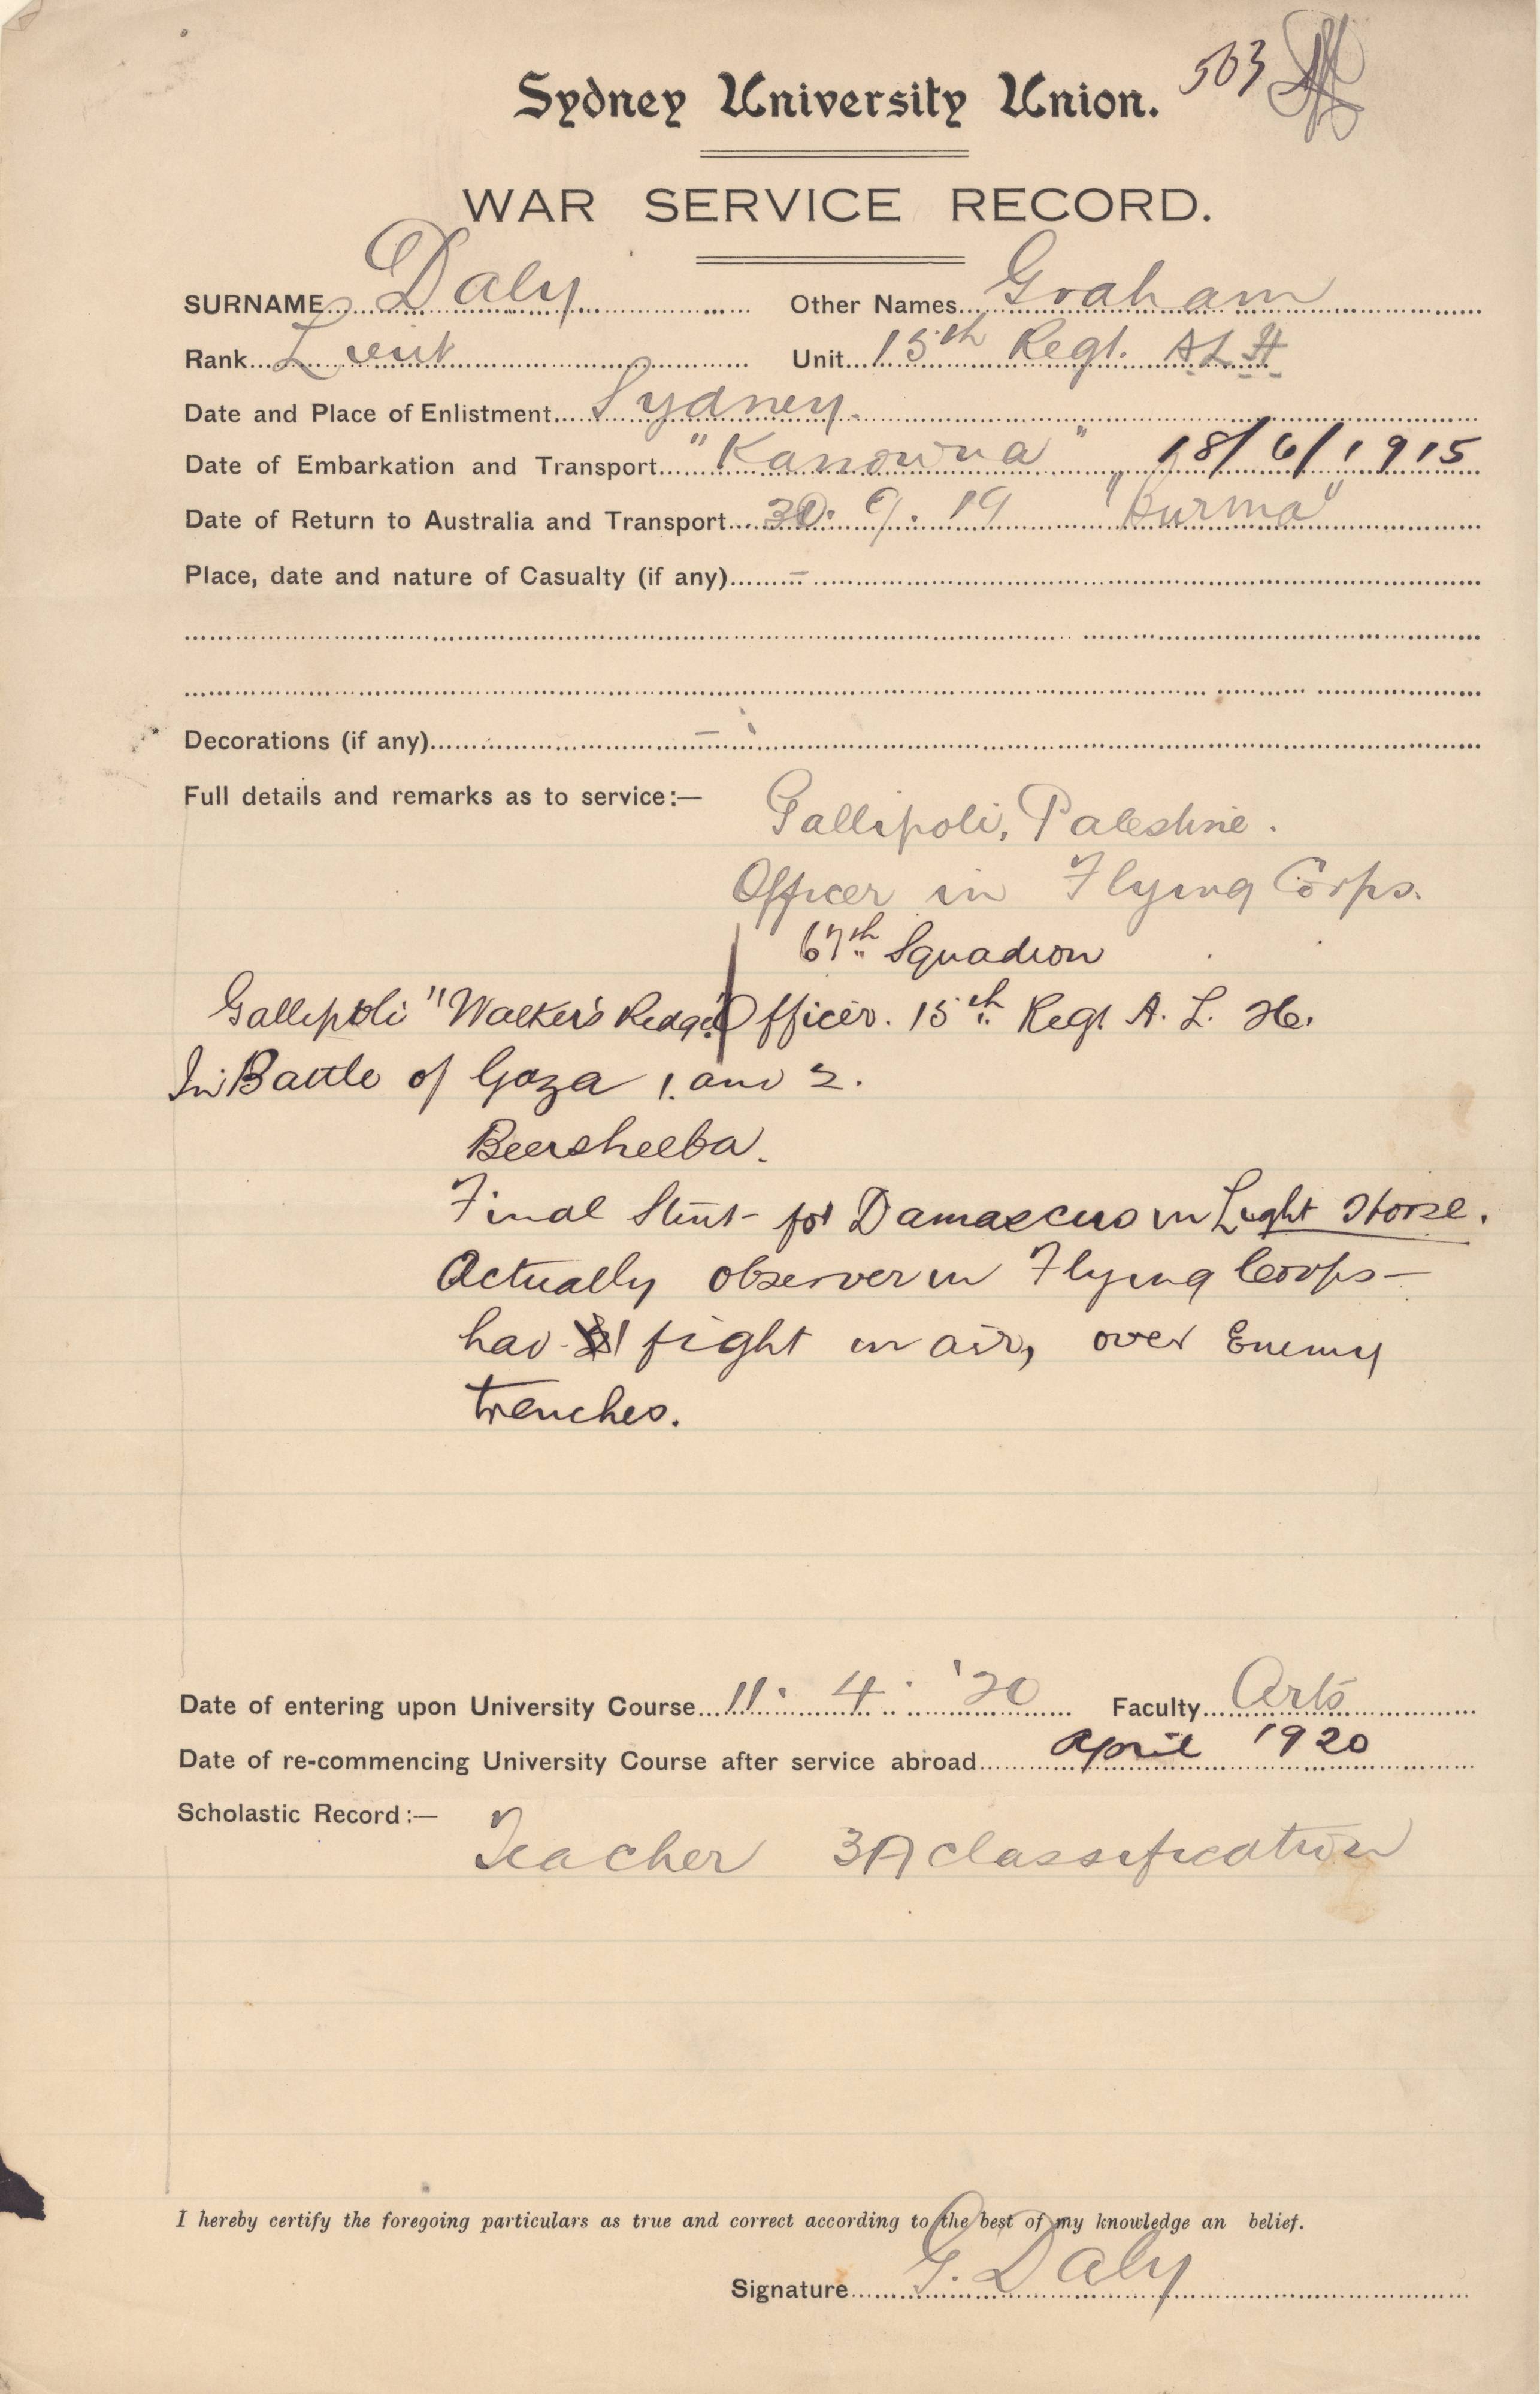 Sydney University Union. 503
WAR SERVICE RECORD.
SURNAME Daly Other Names Graham
Rank Lieut Unit 15th Regt. A L H
Date and Place of Enlistment Sydney.
Date of Embarkation and Transport "Kanowna" 18/6/1915
Date of Return to Australia and Transport 30.9.19 "Burma"
Place, date and nature of Casualty (if any) –
Decorations (if any) –
Full details and remarks as to service:—
Gallipoli, Palestine.
Officer in Flying Corps.
67th Squadron
Gallipoli "Walker's Ridge" Officer. 15th Regt A. L. H.
In Battle of Gaza 1. and 2.
Beersheeba.
Final Stunt - for Damascus in Light Horse.
Actually observer in Flying Corps –
had 1 fight in air, over Enemy
trenches.
Date of entering upon University Course 11. 4. '20 Faculty Arts
Date of re-commencing University Course after service abroad April 1920
Scholastic Record:—
Teacher 3A classification
I hereby certify the foregoing particulars as true and correct according to the best of my knowledge an belief.
Signature G. Daly